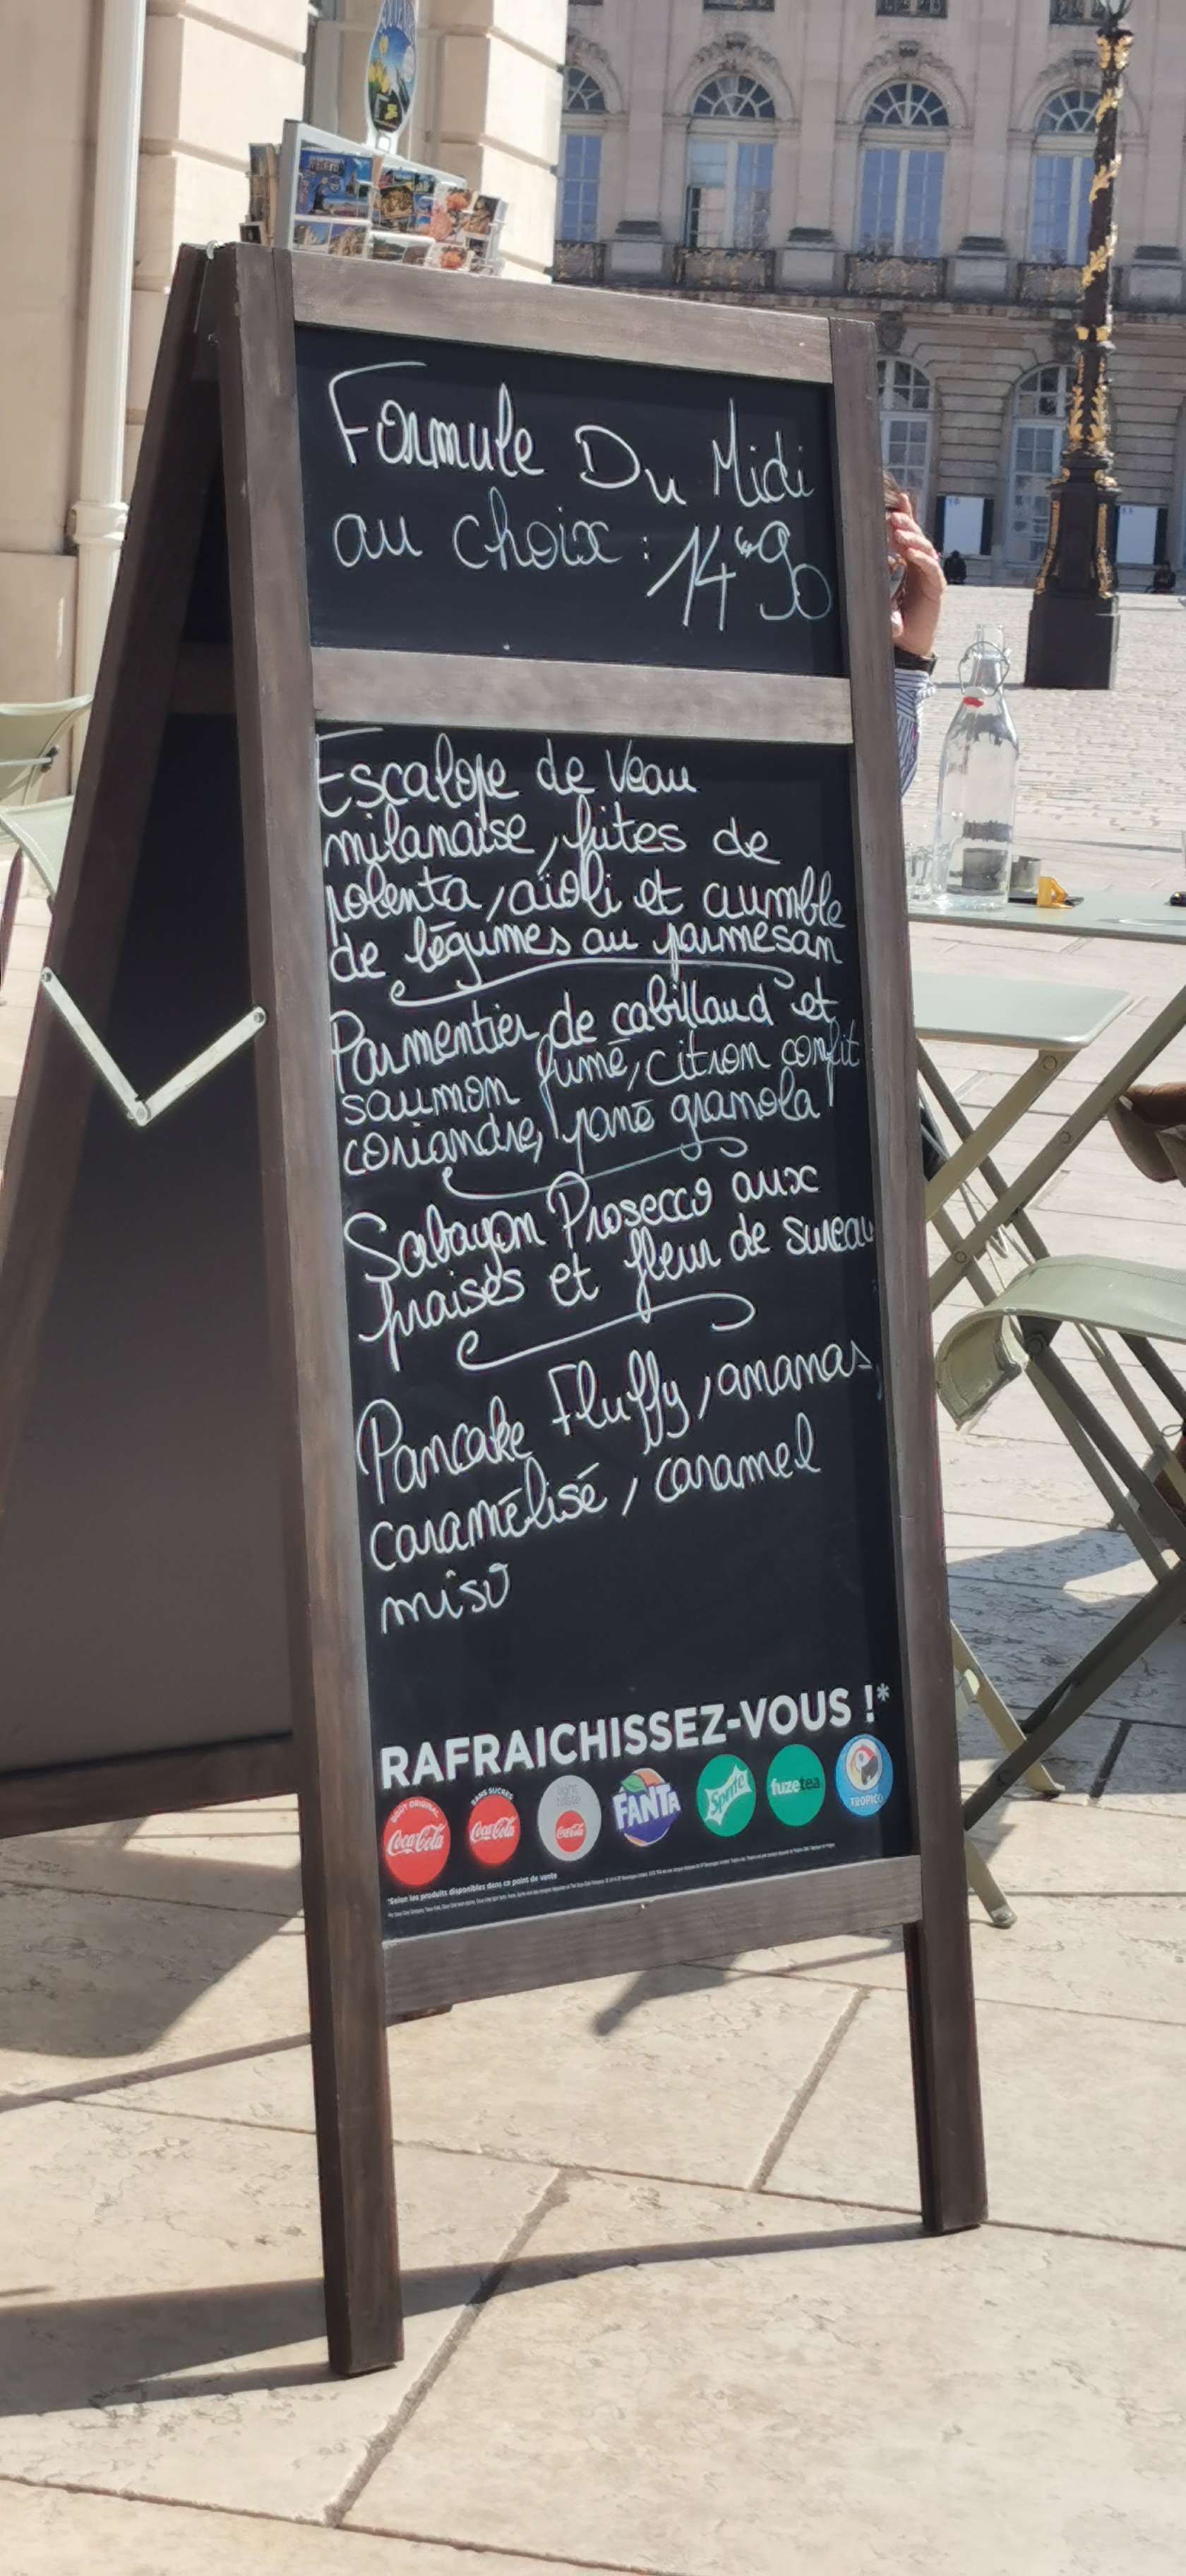 Formule Du Midi
au choix : 14€90
Escalope de Veau
milanaise, frites de
polenta, aïoli et crumble
de légumes au parmesan
Parmentier de cabillaud et
saumon fumé, citron confit
coriandre, pané granola
Sabayon Prosecco aux
fraises et fleur de sureau
Pancake Fluffy, ananas,
caramélisé, caramel
miso
RAFRAICHISSEZ-VOUS !*
GOÛT ORIGINAL Coca-Cola
SANS SUCRES Coca-Cola
light taste Coca-Cola
FANTA
Sprite
fuzetea
TROPICO
*Selon les produits disponibles dans ce point de vente